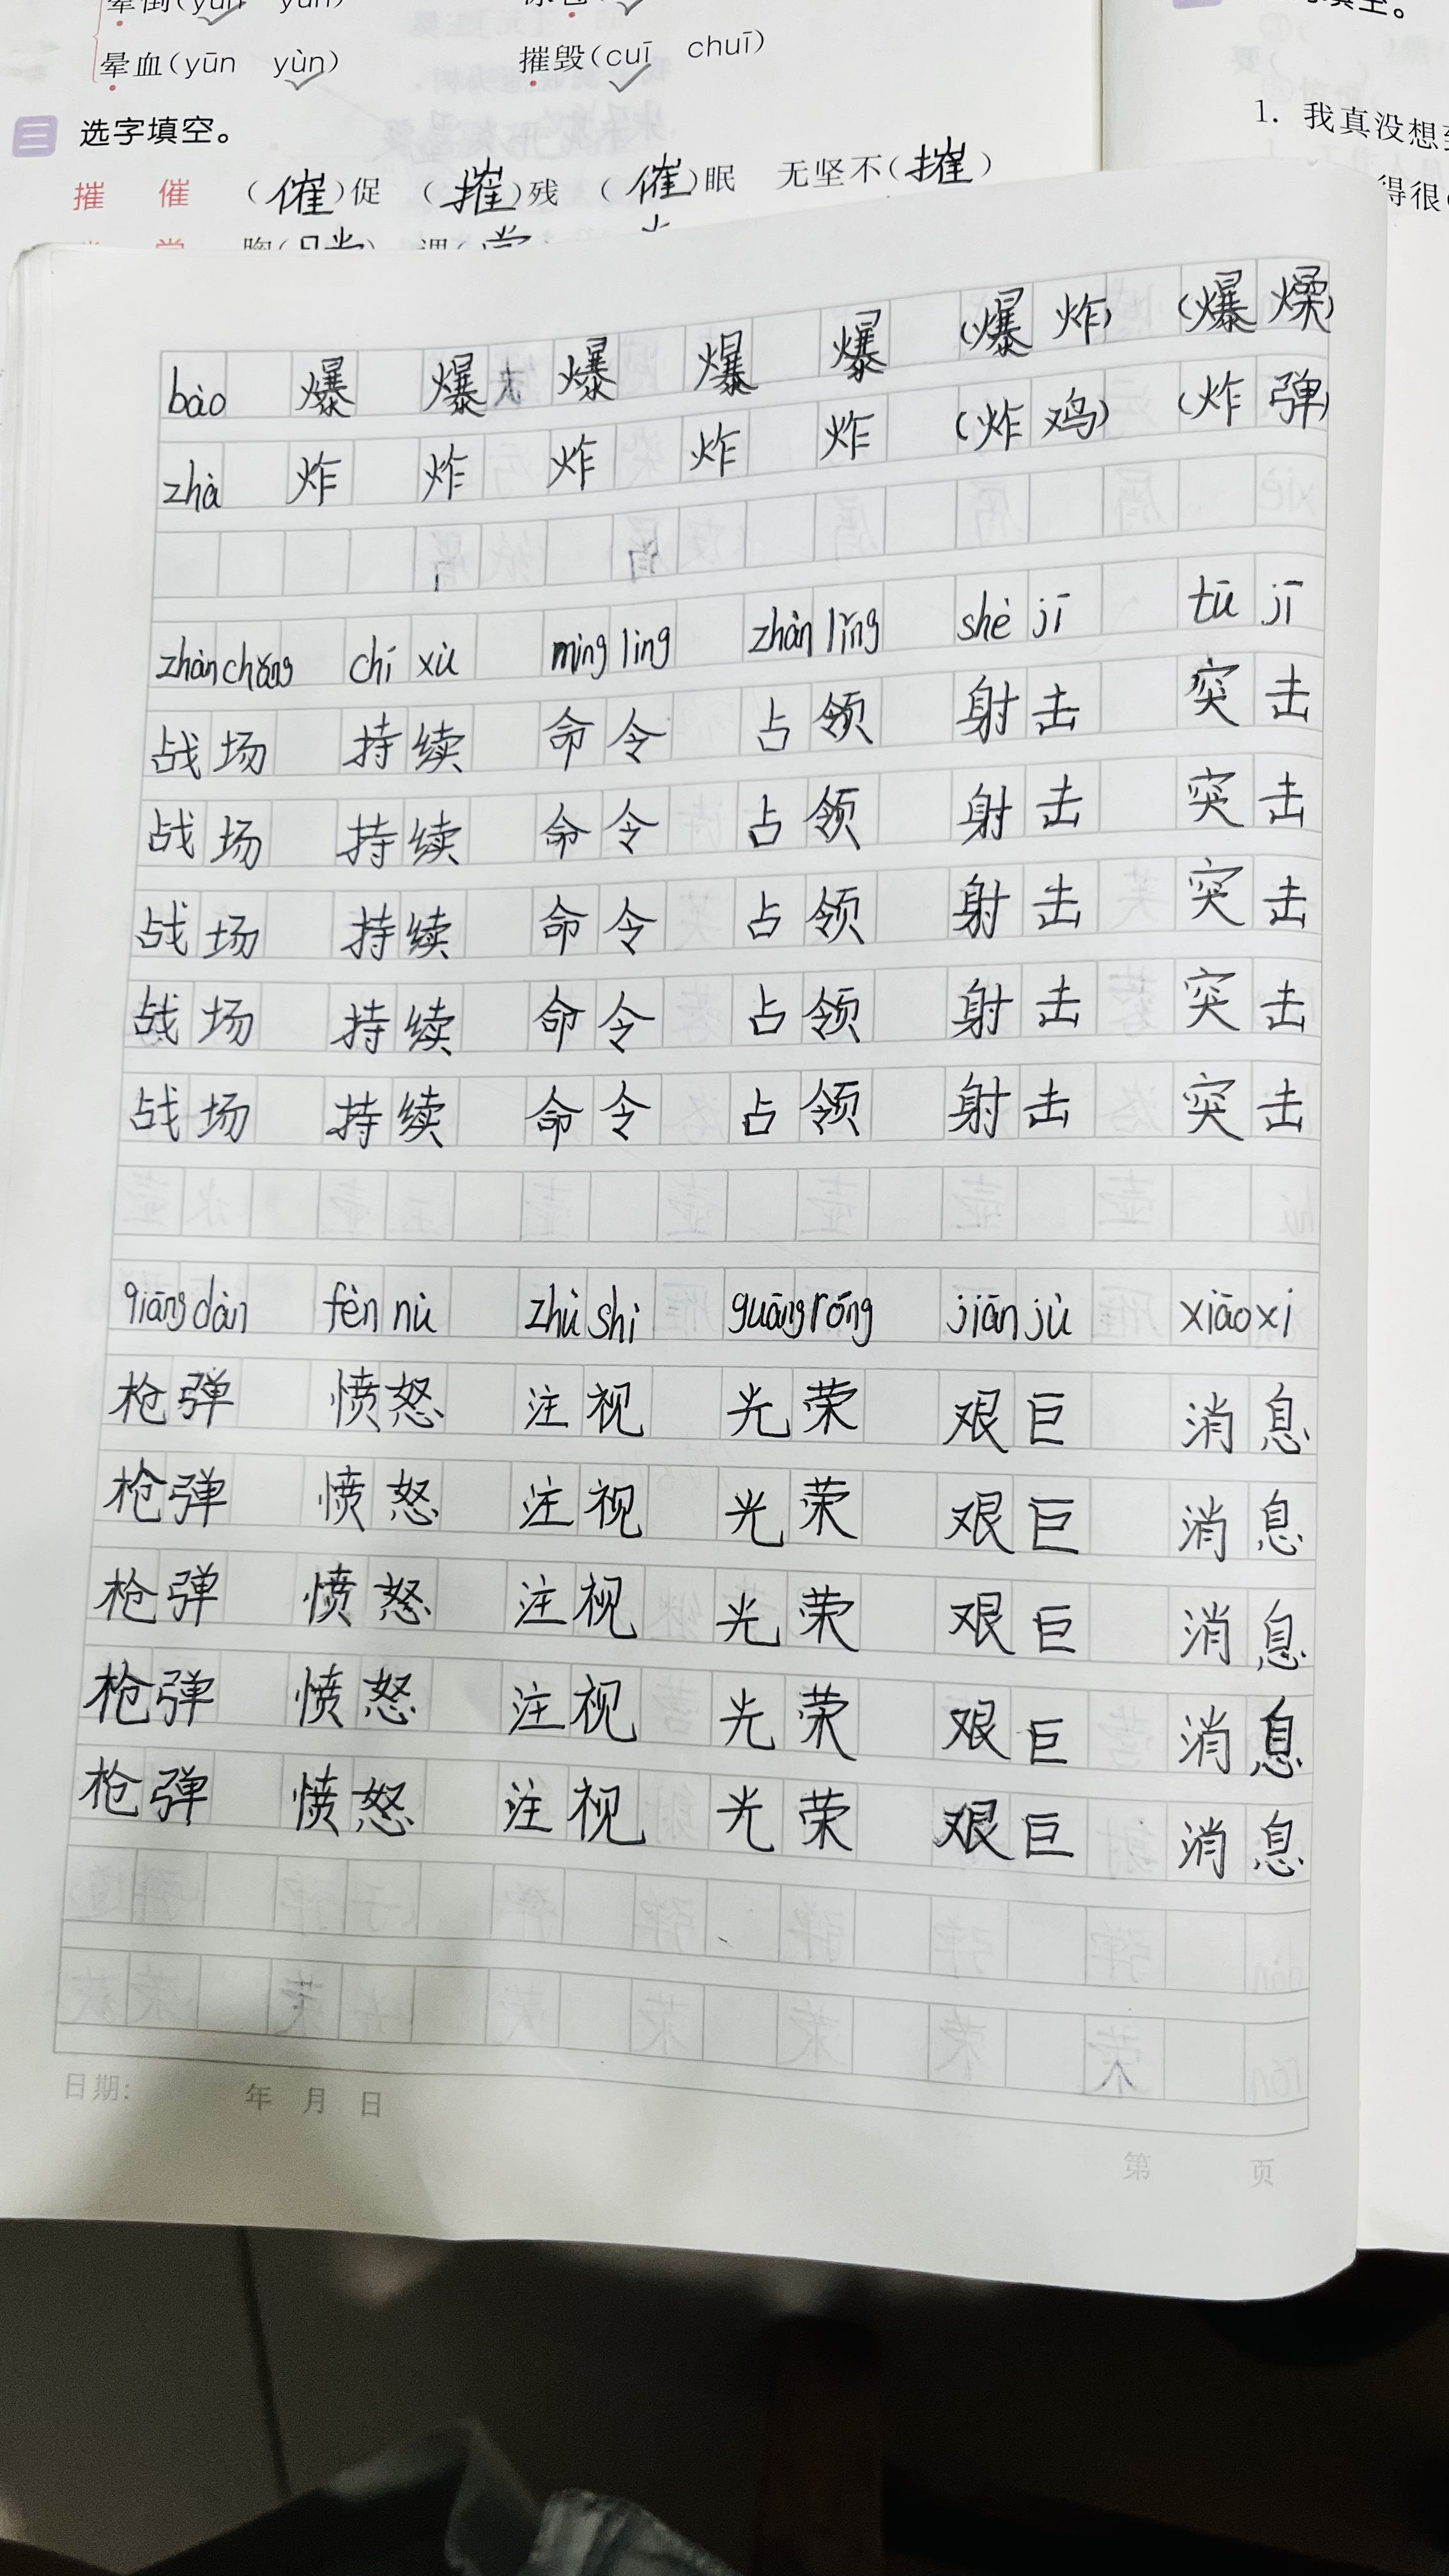 晕血(yūn yùn) 摧毁(cuī chuī)
三 选字填空。
摧 催 (催)促 (摧)残 (催)眠 无坚不(摧)
1. 我真没想
得很
bào 爆 爆 爆 爆 爆 (爆炸) (爆燥)
zhà 炸 炸 炸 炸 炸 (炸鸡) (炸弹)
zhàn chǎng chí xù mìng lìng zhàn lǐng shè jī tū jī
战场 持续 命令 占领 射击 突击
战场 持续 命令 占领 射击 突击
战场 持续 命令 占领 射击 突击
战场 持续 命令 占领 射击 突击
战场 持续 命令 占领 射击 突击
qiāng dàn fèn nù zhù shì guāng róng jiān jù xiāo xi
枪弹 愤怒 注视 光荣 艰巨 消息
枪弹 愤怒 注视 光荣 艰巨 消息
枪弹 愤怒 注视 光荣 艰巨 消息
枪弹 愤怒 注视 光荣 艰巨 消息
枪弹 愤怒 注视 光荣 艰巨 消息
日期: 年 月 日
第 页